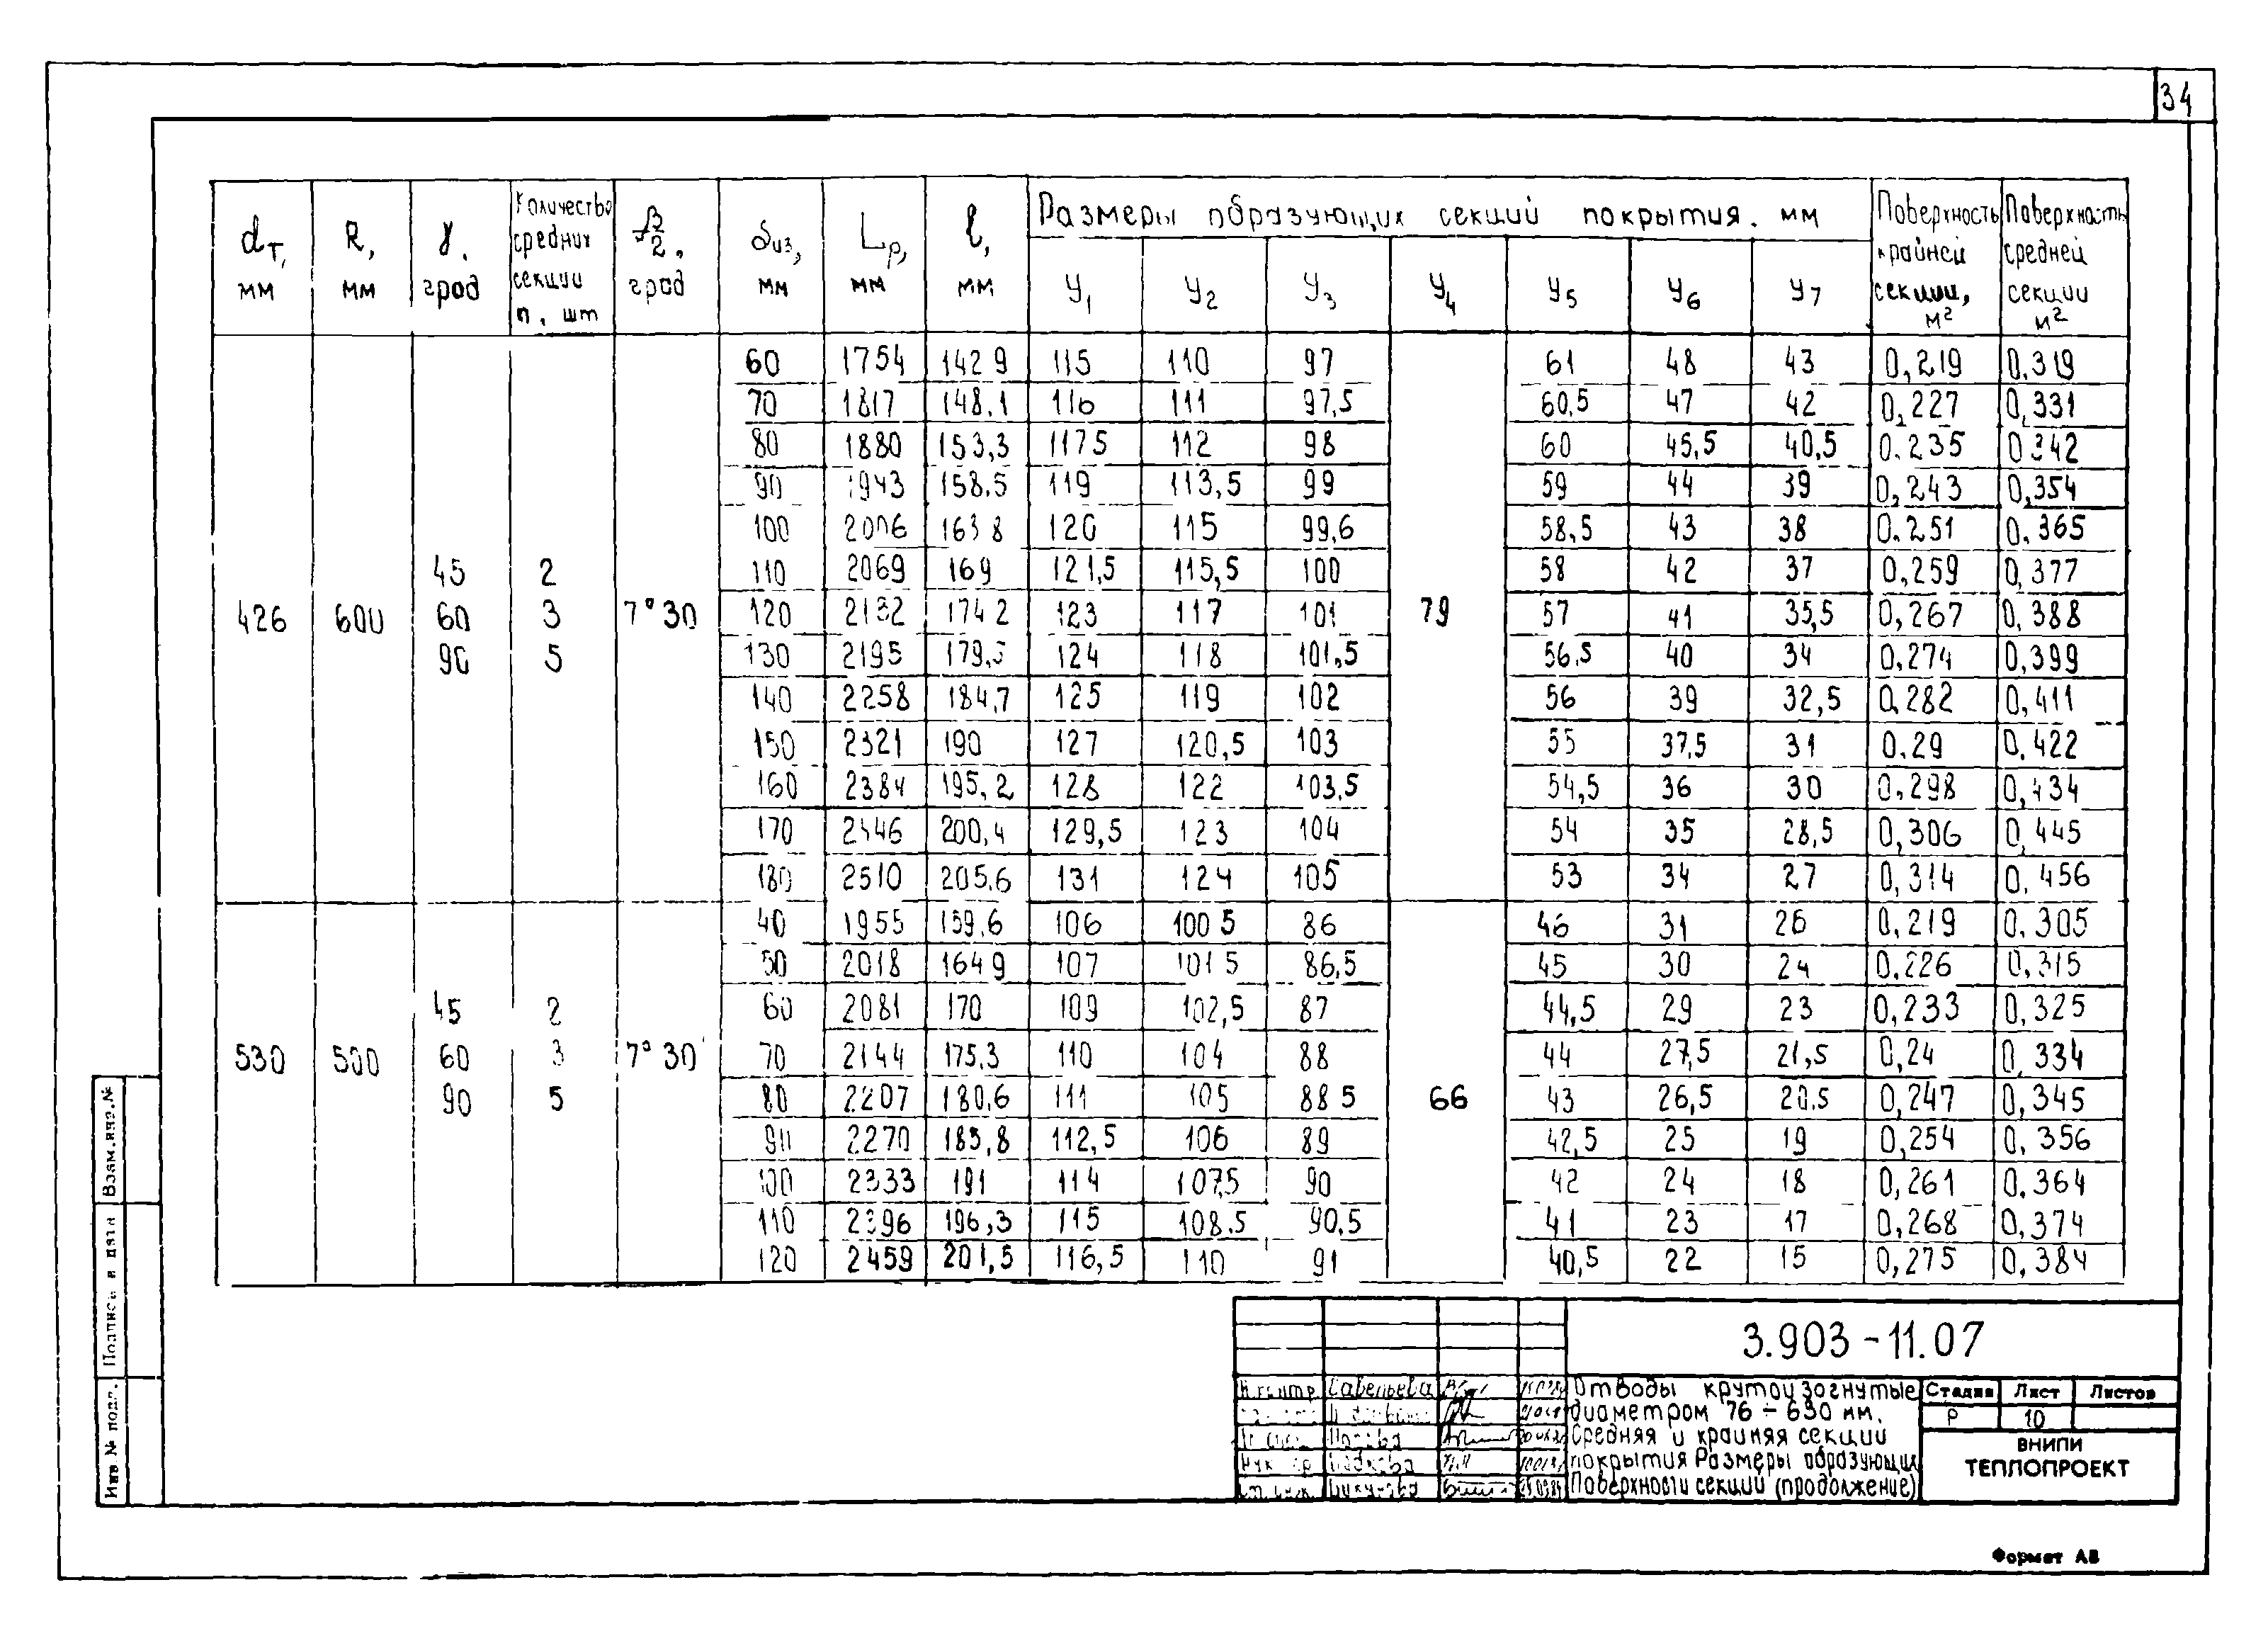 34
dт, мм
R, мм
γ, град
Количество средних секции n, шт
β/2, град
δиз, мм
Lр, мм
ℓ, мм
Размеры образующих секций покрытия. мм
У1 У2 У3 У4 У5 У6 У7
Поверхность крайней секции, м²
Поверхность средней секции м²
426 600 7°30 79
45 2
60 3
90 5
60 1754 142 9 115 110 97 61 48 43 0,219 0,319
70 1817 148,1 116 111 97,5 60,5 47 42 0,227 0,331
80 1880 153,3 117 5 112 98 60 45,5 40,5 0.235 0 342
90 1943 158,5 119 113,5 99 59 44 39 0,243 0,354
100 2006 163 8 120 115 99,6 58,5 43 38 0.251 0.365
110 2069 169 121,5 115,5 100 58 42 37 0,259 0,377
120 2132 174 2 123 117 101 57 41 35,5 0,267 0,388
130 2195 179,5 124 118 101,5 56,5 40 34 0,274 0,399
140 2258 184,7 125 119 102 56 39 32,5 0,282 0,411
150 2321 190 127 120,5 103 55 37,5 31 0.29 0.422
160 2384 195,2 128 122 103,5 54,5 36 30 0,298 0,434
170 2446 200,4 129,5 123 104 54 35 28,5 0,306 0,445
180 2510 205,6 131 124 105 53 34 27 0,314 0,456
530 500 7°30' 66
45 2
60 3
90 5
40 1955 159,6 106 100 5 86 46 31 26 0,219 0.305
50 2018 164 9 107 101 5 86,5 45 30 24 0.226 0,315
60 2081 170 109 102,5 87 44,5 29 23 0,233 0,325
70 2144 175,3 110 104 88 44 27,5 21,5 0,24 0,334
80 2207 180,6 111 105 88 5 43 26,5 20,5 0,247 0,345
90 2270 185,8 112,5 106 89 42,5 25 19 0,254 0,356
100 2333 191 114 107,5 90 42 24 18 0,261 0.364
110 2396 196,3 115 108.5 90,5 41 23 17 0,268 0,374
120 2459 201,5 116,5 110 91 40,5 22 15 0,275 0,384
3.903-11.07
Н.контр Савельева
Отводы крутоизогнутые
диаметром 76 ÷ 630 мм.
Средняя и крайняя секции
покрытия Размеры образующих
Поверхности секции (продолжение)
Стадия Лист Листов
Р 10
ВНИПИ
ТЕПЛОПРОЕКТ
Взам.инв.№
Подпись и дата
Инв.№ подл.
Формат